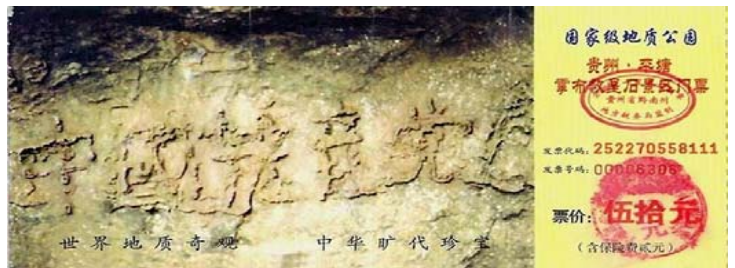 中國共産党
世界地质奇观 中华旷代珍宝
国家级地质公园
贵州·平塘
掌布救星石景区门票
贵州省黔南州
发票代码:252270558111
发票号码:00006306
票价:伍拾元
(含保险费贰元)